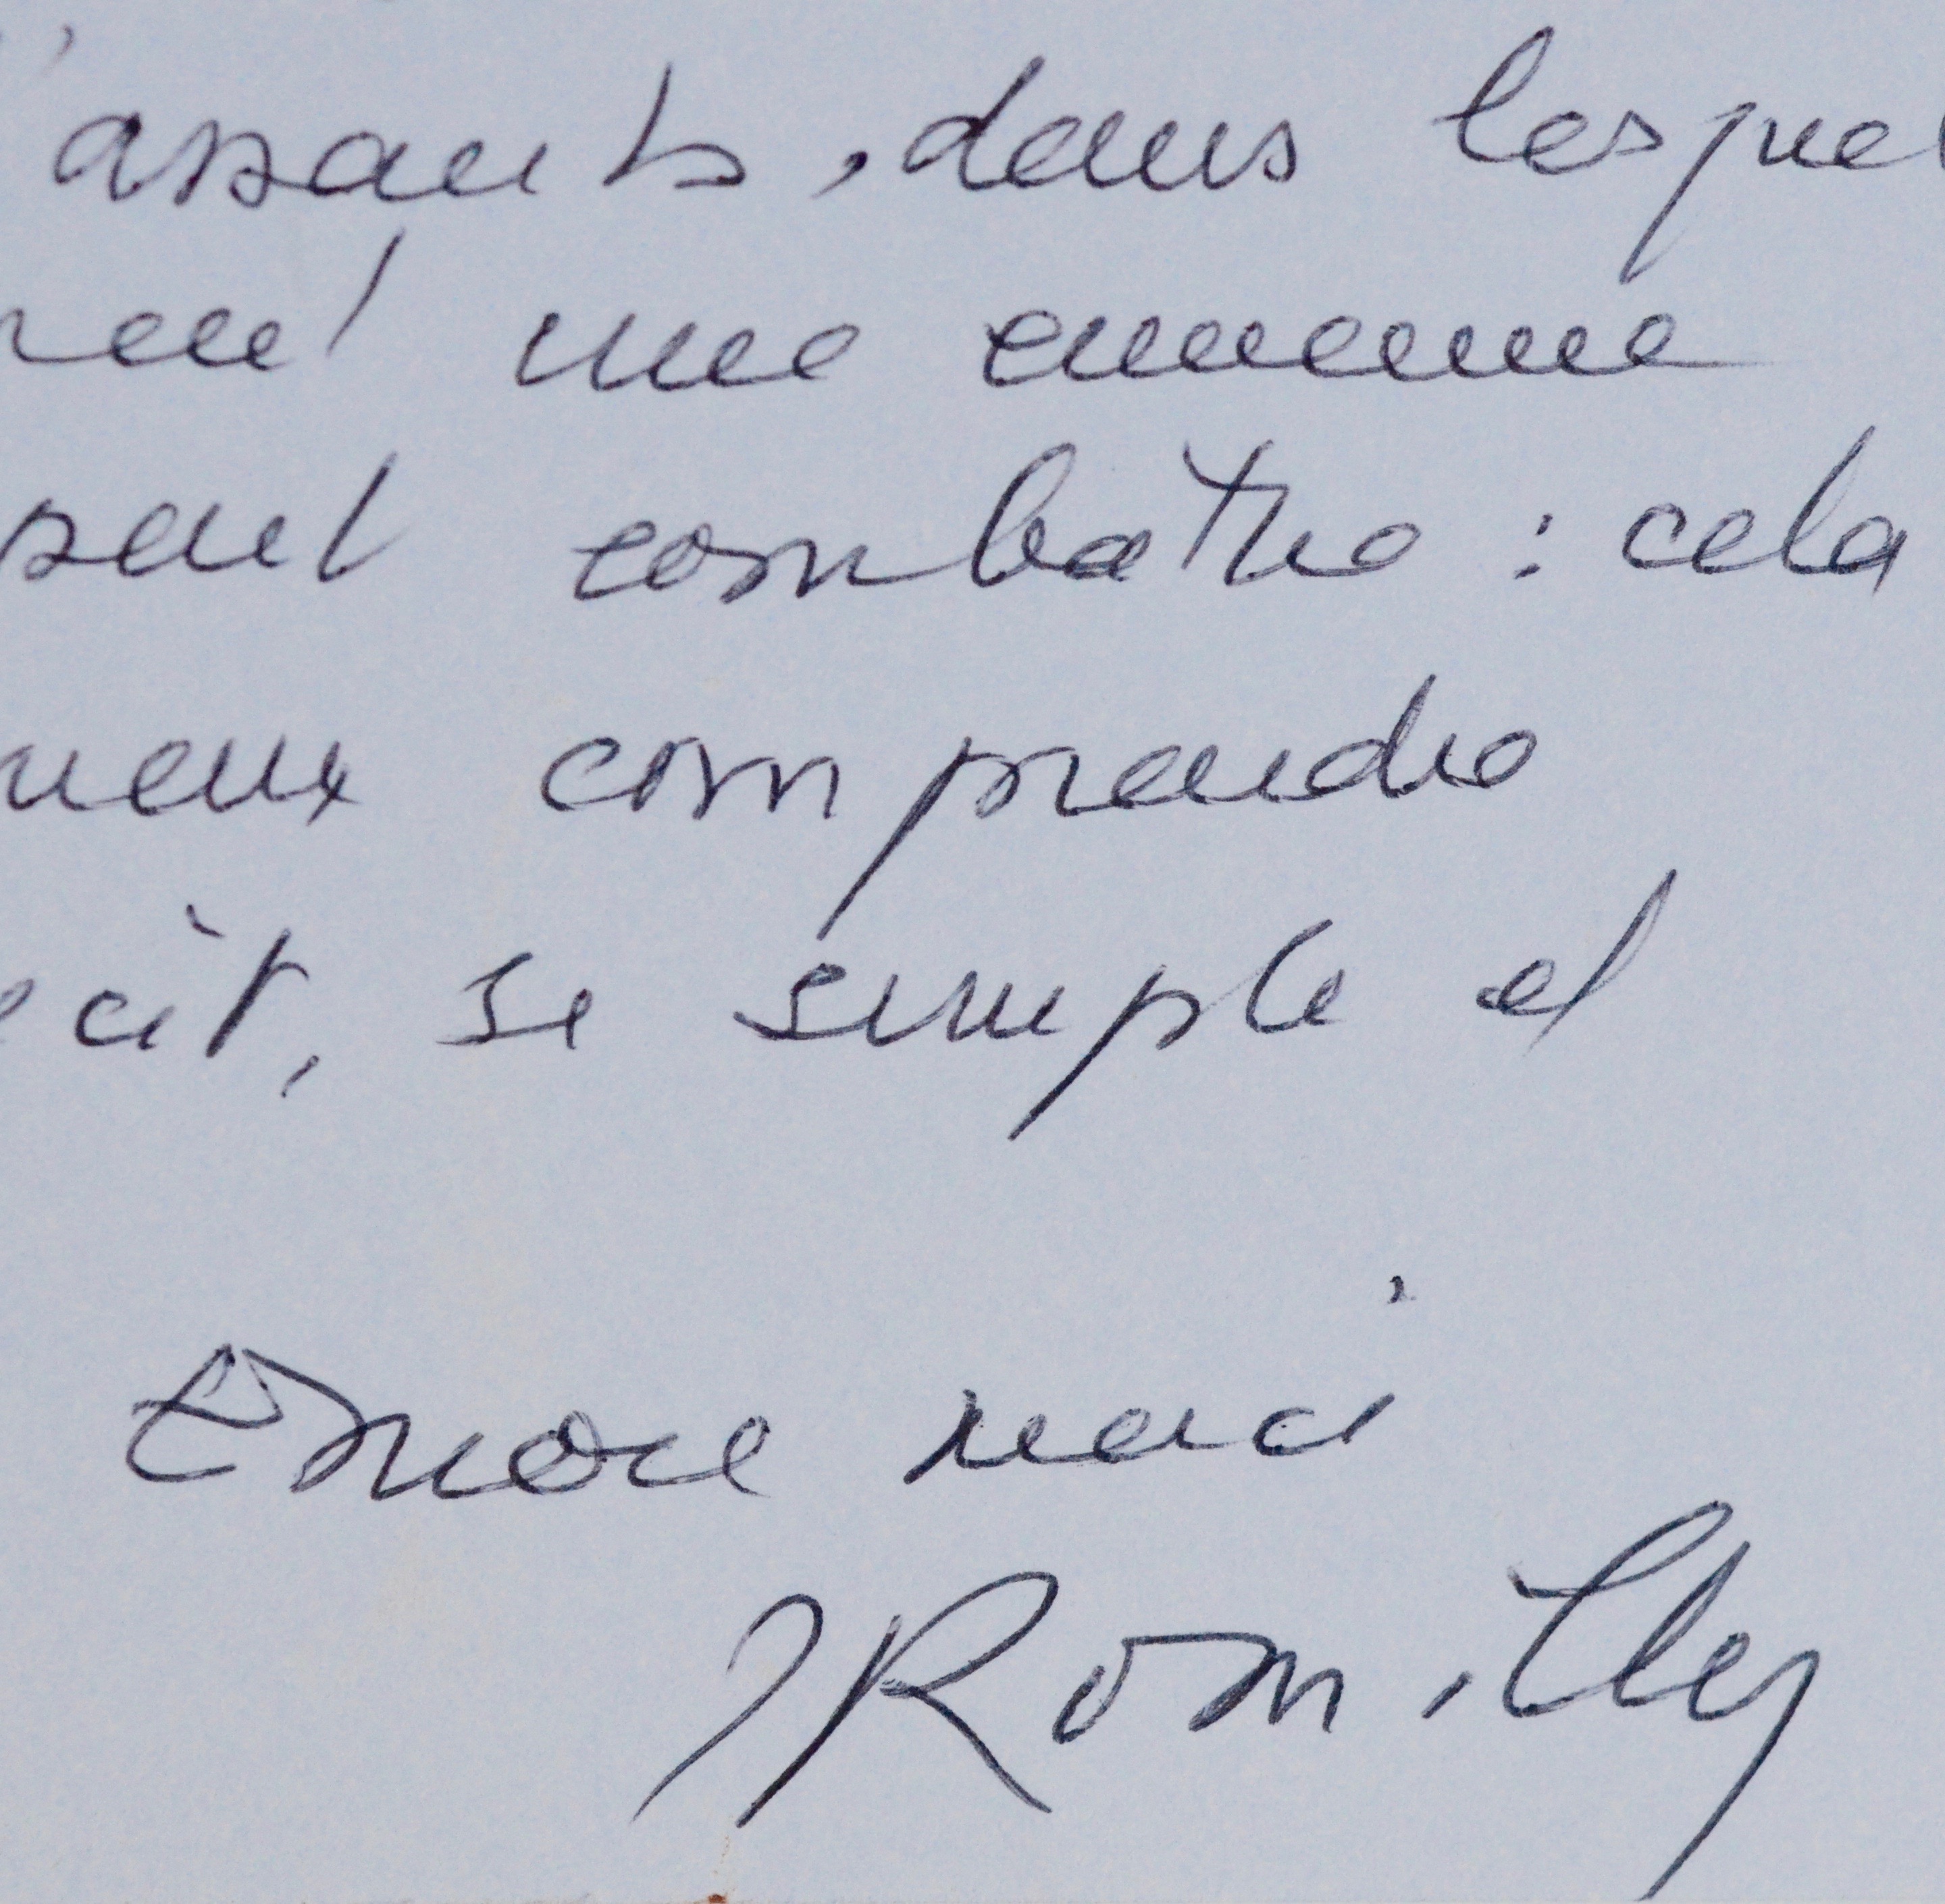 'assauts, dans lesquel
une ennemie
sant combattre : cela
mieux comprendre
écit, si simple et
Encore merci
JRomilly